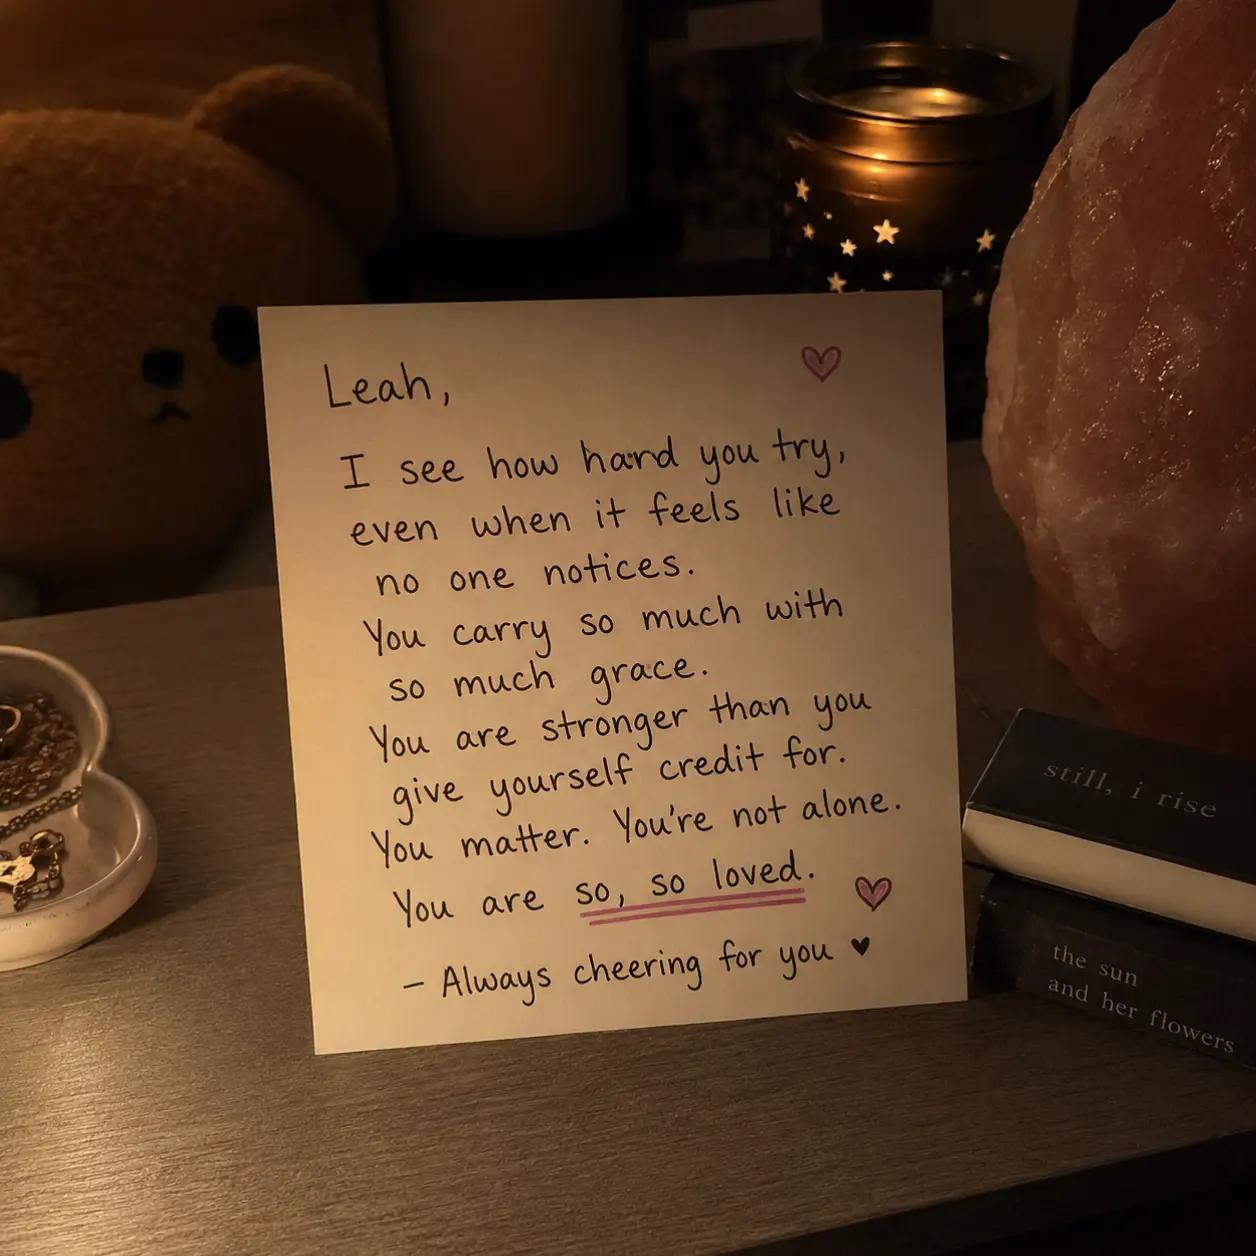 Leah,
I see how hard you try,
even when it feels like
no one notices.
You carry so much with
so much grace.
You are stronger than you
give yourself credit for.
You matter. You're not alone.
You are so, so loved.
– Always cheering for you ♥
still, i rise
the sun
and her flowers